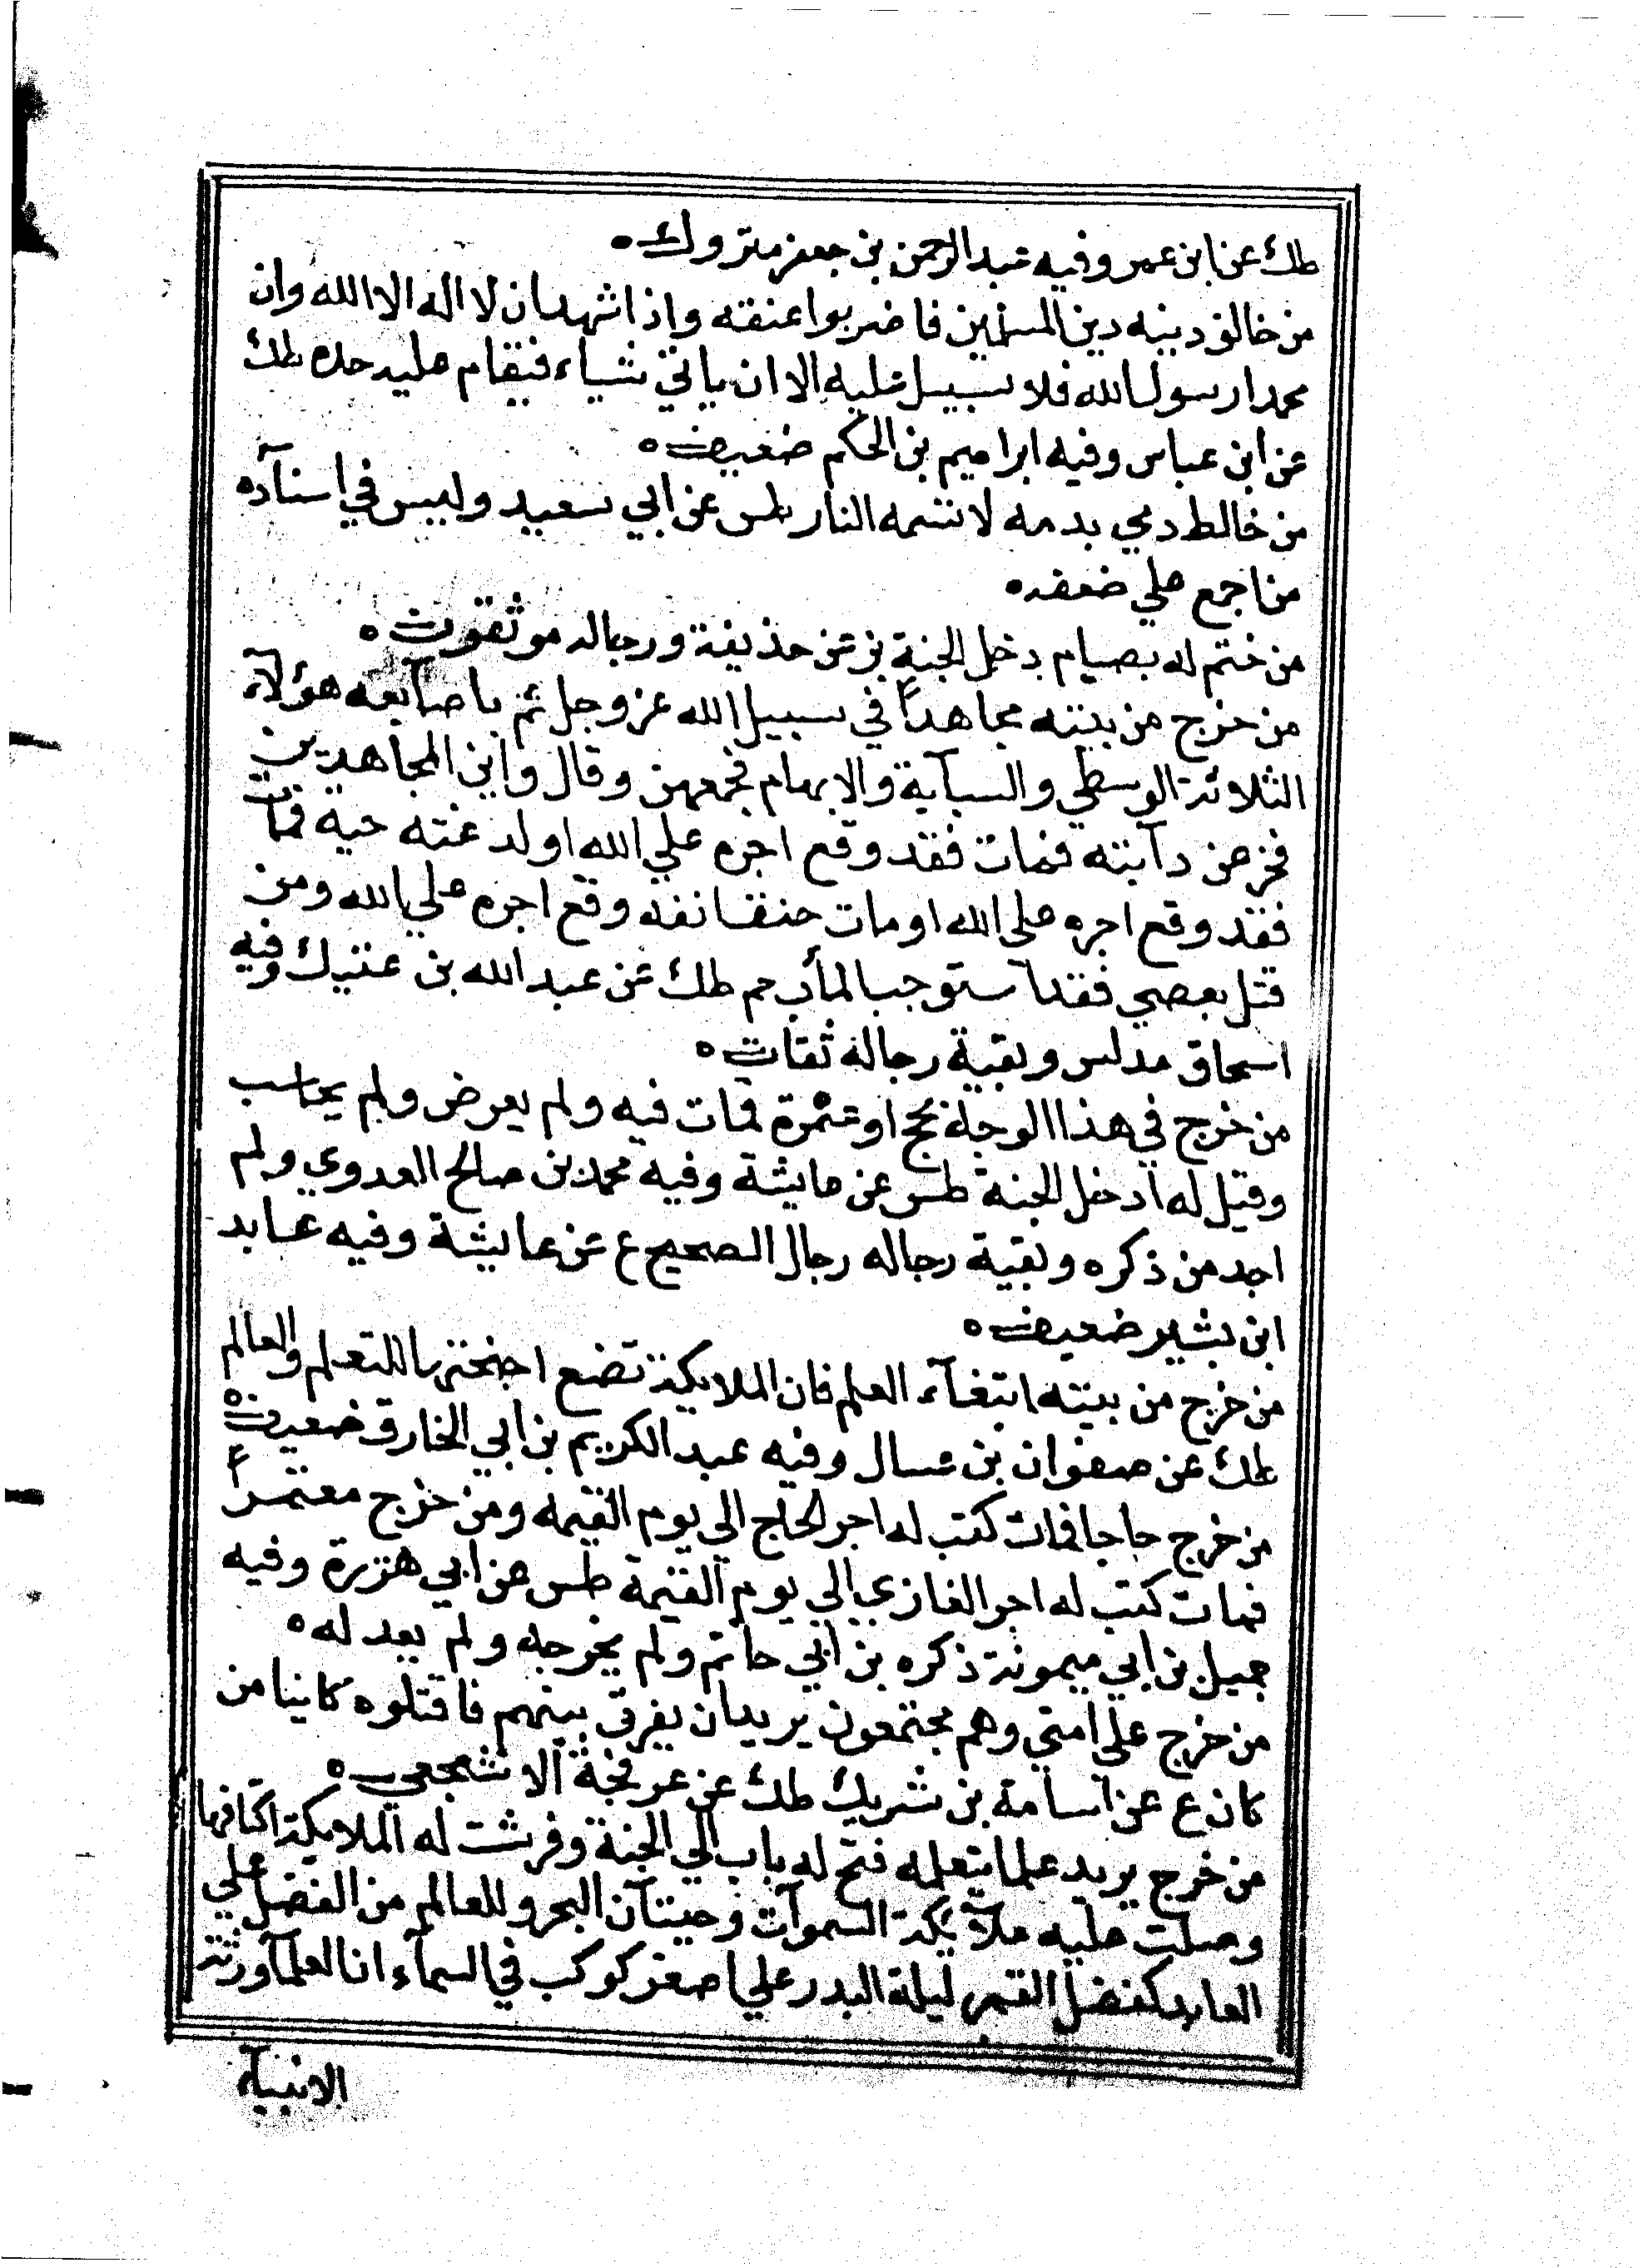 طك عن ابن عمر وفيه عبد الرحمن بن جعفر متروك ه
من خالف دينه دين المسلمين فاضربوا عنقه واذا شهد ان لا اله الا الله وان
محمدا رسول الله فلا سبيل عليه الا ان ياتي شياء فيقام عليه حده طك
عن ابن عباس وفيه ابراهيم بن الحكم ضعيف ه
من خالط دمي بدمه لا تشمه النار طس عن ابي سعيد وليس في اسناده
من اجمع علي ضعفه ه
من ختم له بصيام دخل الجنة بز عن حذيفة ورجاله موثقوت ه
من خرج من بيته مجاهداً في سبيل الله عز وجل ثم باصابعه هؤلآء
الثلاثة الوسطي والسبابة والابهام فجمعهن وقال واين المجاهدين
فخر من دآبته فمات فقد وقع اجره علي الله او لدغته حيه فمات
فقد وقع اجره علي الله او مات حتف انفه وقع اجره علي الله ومن
قتل بعصي فقد استوجب المأب حم طك عن عبد الله بن عتيك وفيه
اسحاق مدلس وبقية رجاله ثقات ه
من خرج في هذا الوجه بحج او عمرة فمات فيه ولم يعرض ولم يحاسب
وقيل له ادخل الجنة طس عن عايشة وفيه محمد بن صالح العدوي ولم
اجد من ذكره وبقية رجاله رجال الصحيح ع عن عايشة وفيه عابد
ابن بشير ضعيف ه
من خرج من بيته ابتغآء العلم فان الملايكة تضع اجنحتها للتعلم والعالم
طك عن صفوان بن عسال وفيه عبد الكريم بن ابي الخارق ضعيف ه
من خرج حاجا فمات كتب له اجر الحاج الي يوم القيمه ومن خرج معتمراً
فمات كتب له اجر الغازي الي يوم القيمة طس عن ابي هريرة وفيه
جميل بن ابي ميمونة ذكره بن ابي حاتم ولم يخرجه ولم يعد له ه
من خرج علي امتي وهم مجتمعون يريد ان يفرق بينهم فاقتلوه كاينا من
كان ع عن اسامة بن شريك طك عن عرفجة الاشجعي ه
من خرج يريد علما يتعلمه فتح له باب الي الجنة وفرشت له الملايكة اكنافها
وصلت عليه ملائكة السموآت وحيتآن البحر وللعالم من الفضل علي
العابد كفضل القمر ليلة البدر علي اصغر كوكب في السمآء ان العلمآ ورثة
الانبيآء